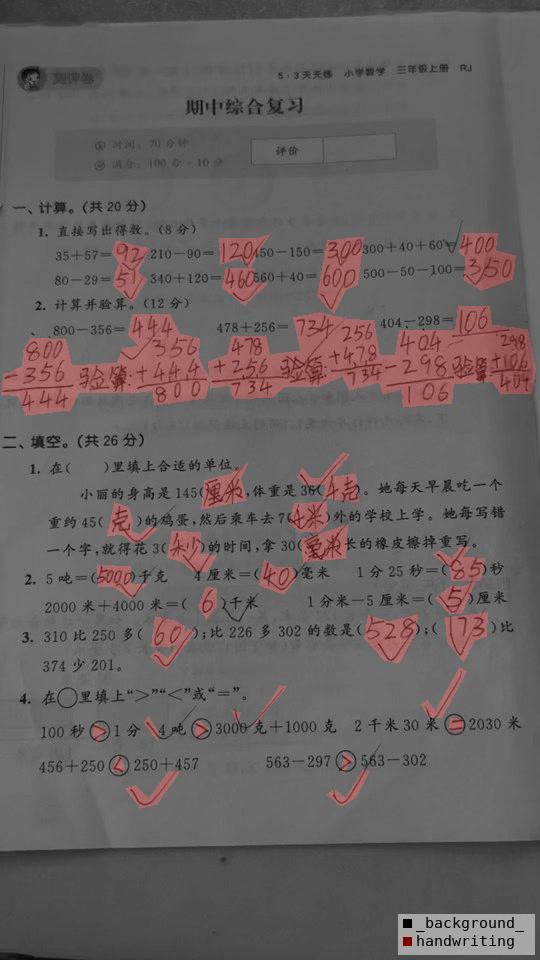 测评卷
5·3天天练 小学数学 三年级上册 RJ
期中综合复习
时间:70分钟
满分:100分+10分
评价
一、计算。(共20分)
1. 直接写出得数。(8分)
35+57=92 210-90=120 450-150=300 300+40+60=400
80-29=51 340+120=460 560+40=600 500-50-100=350
2. 计算并验算。(12分)
800-356=444 478+256=734 404-298=106
800 356 478 256 404 298
-356 验算:+444 +256 验算:+478 -298 验算:+106
444 800 734 734 106 404
二、填空。(共26分)
1. 在( )里填上合适的单位。
小丽的身高是145(厘米),体重是36(千克)。她每天早晨吃一个
重约45(克)的鸡蛋,然后乘车去7(千米)外的学校上学。她每写错
一个字,就得花3(秒)的时间,拿30(毫米)长的橡皮擦掉重写。
2. 5吨=(5000)千克 4厘米=(40)毫米 1分25秒=(85)秒
2000米+4000米=(6)千米 1分米-5厘米=(5)厘米
3. 310比250多(60);比226多302的数是(528);(173)比
374少201。
4. 在○里填上“>”“<”或“=”。
100秒>1分 4吨>3000克+1000克 2千米30米=2030米
456+250<250+457 563-297>563-302
_background_
handwriting